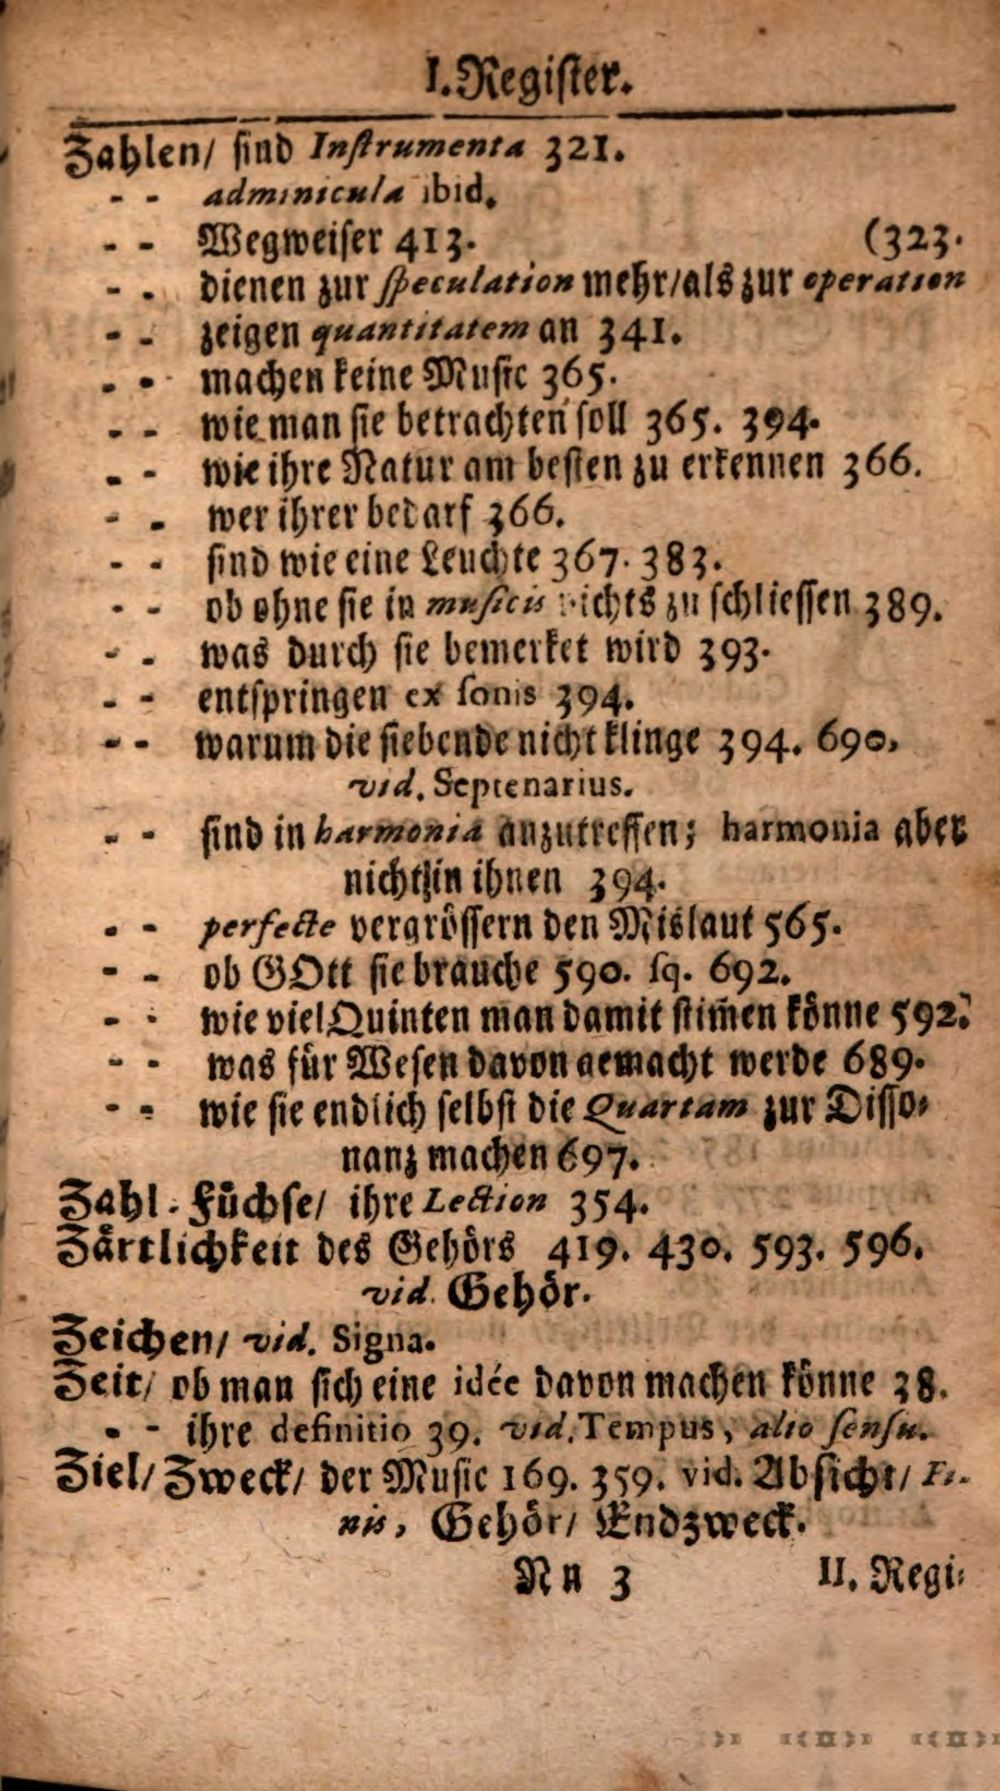 I. Register.
Zahlen/ sind Instrumenta 321.
- - adminicula ibid.
- - Wegweiser 413. (323.
- - dienen zur speculation mehr/als zur operation
- - zeigen quantitatem an 341.
- - machen keine Music 365.
- - wie man sie betrachten soll 365. 394.
- - wie ihre Natur am besten zu erkennen 366.
- - wer ihrer bedarf 366.
- - sind wie eine Leuchte 367. 383.
- - ob ohne sie in musicis nichts zu schliessen 389.
- - was durch sie bemerket wird 393.
- - entspringen ex sonis 394.
- - warum die siebende nicht klinge 394. 690.
vid. Septenarius.
- - sind in harmonia anzutreffen; harmonia aber
nicht in ihnen 394.
- - perfecte vergrössern den Mislaut 565.
- - ob GOtt sie brauche 590. sq. 692.
- - wie viel Quinten man damit stim̃en könne 592.
- - was für Wesen davon gemacht werde 689.
- - wie sie endlich selbst die Quartam zur Disso-
nanz machen 697.
Zahl-Füchse/ ihre Lection 354.
Zärtlichkeit des Gehörs 419. 430. 593. 596.
vid. Gehör.
Zeichen/ vid. Signa.
Zeit/ ob man sich eine idée davon machen könne 38.
- - ihre definitio 39. vid. Tempus, alio sensu.
Ziel/ Zweck/ der Music 169. 359. vid. Absicht/ Fi-
nis, Gehör/ Endzweck.
Nn 3 II. Regi-